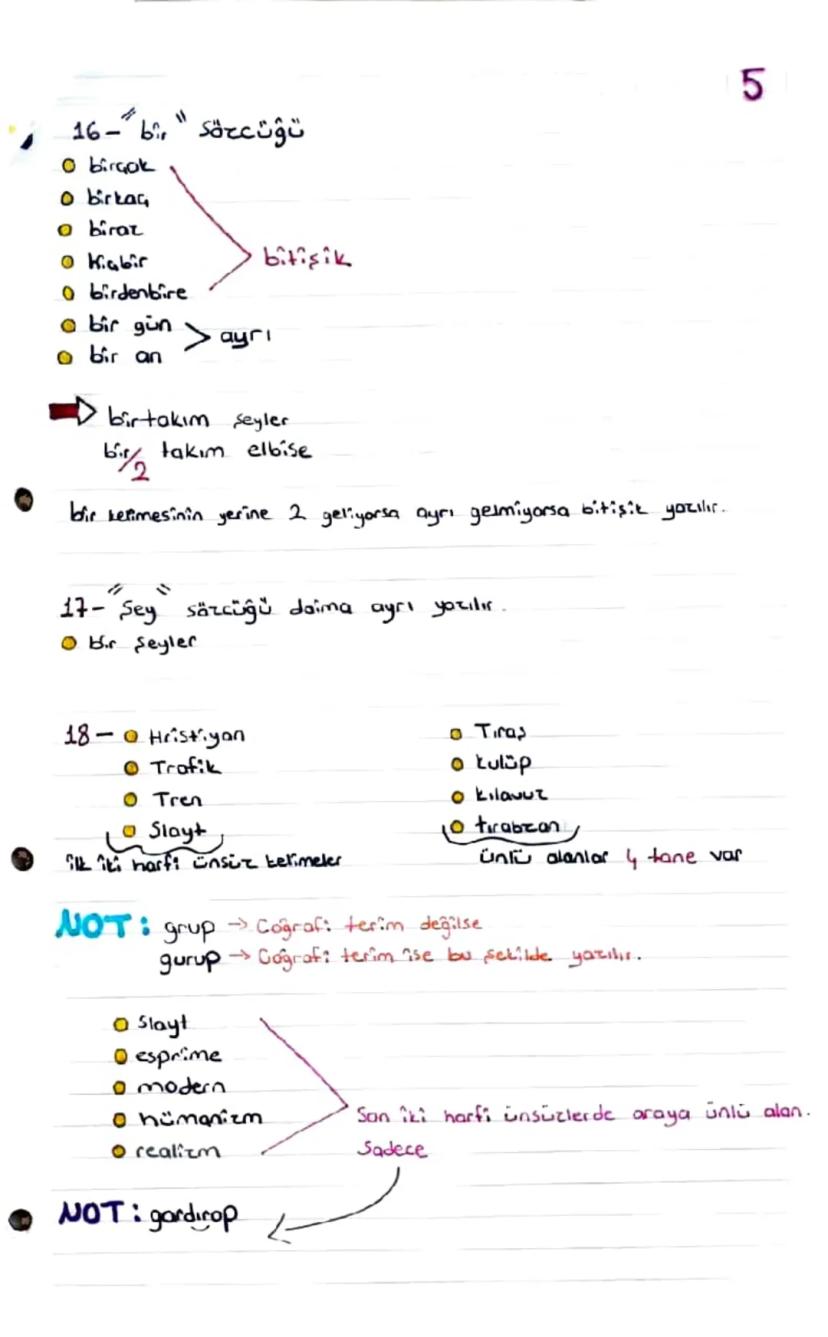 5
16- "bir" sözcüğü
birçok
birkaç
biraz
Hiçbir
birdenbire
bitişik
bir gün
bir an
ayrı
birtakım şeyler
bir/2 takım elbise
bir kelimesinin yerine 2 geliyorsa ayrı gelmiyorsa bitişik yazılır.
17- "Şey" sözcüğü daima ayrı yazılır.
bir şeyler
18- Hristiyan
Trafik
Tren
Slayt
ilk iki harfi ünsüz kelimeler
Tıraş
kulüp
kılavuz
tırabzan
ünlü alanlar 4 tane var
NOT: grup → Coğrafi terim değilse
gurup → Coğrafi terim ise bu şekilde yazılır.
Slayt
esprime
modern
hümanizm
realizm
Son iki harfi ünsüzlerde araya ünlü alan.
Sadece
NOT: gardırop